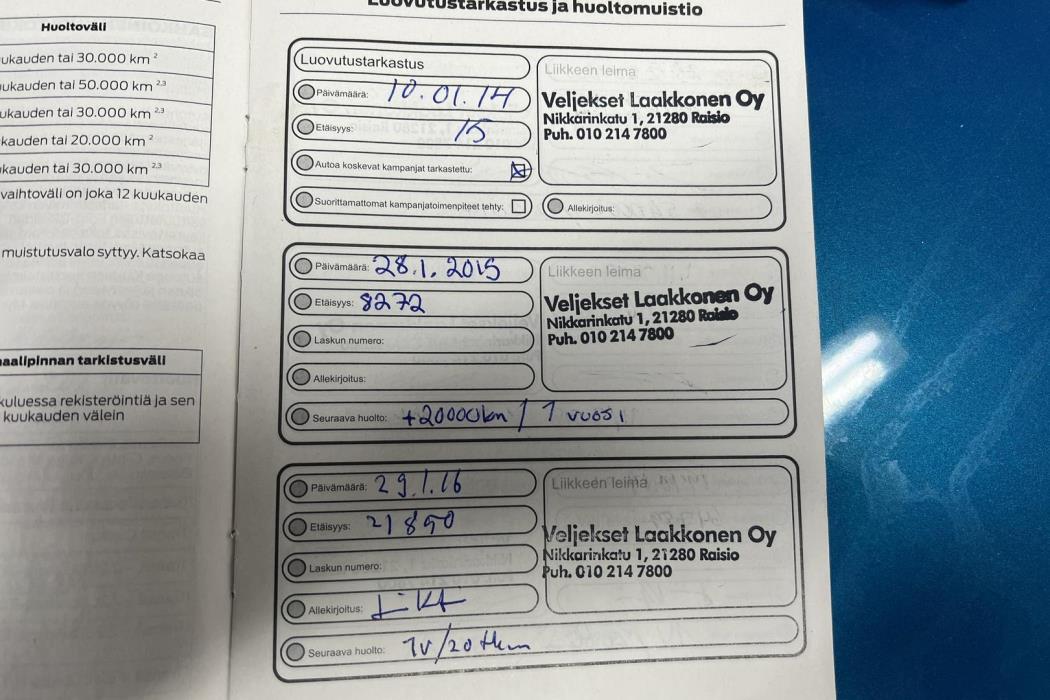 Huoltoväli
ukauden tai 30.000 km 2
ukauden tai 50.000 km 2,3
ukauden tai 30.000 km 2,3
kauden tai 20.000 km 2
kauden tai 30.000 km 2,3
vaihtoväli on joka 12 kuukauden
muistutusvalo syttyy. Katsokaa
aalipinnan tarkistusväli
kuluessa rekisteröintiä ja sen
kuukauden välein
Luovutustarkastus ja huoltomuistio
Luovutustarkastus
Päivämäärä: 10.01.14
Etäisyys: 15
Autoa koskevat kampanjat tarkastettu:
Suorittamattomat kampanjatoimenpiteet tehty:
Liikkeen leima
Veljekset Laakkonen Oy
Nikkarinkatu 1, 21280 Raisio
Puh. 010 214 7800
Allekirjoitus:
Päivämäärä: 28.1.2015
Etäisyys: 8272
Laskun numero:
Allekirjoitus:
Liikkeen leima
Veljekset Laakkonen Oy
Nikkarinkatu 1, 21280 Raisio
Puh. 010 214 7800
Seuraava huolto: +20000km / 1 vuosi
Päivämäärä: 29.1.16
Etäisyys: 21890
Laskun numero:
Allekirjoitus:
Liikkeen leima
Veljekset Laakkonen Oy
Nikkarinkatu 1, 21280 Raisio
Puh. 010 214 7800
Seuraava huolto: 1v/20tkm